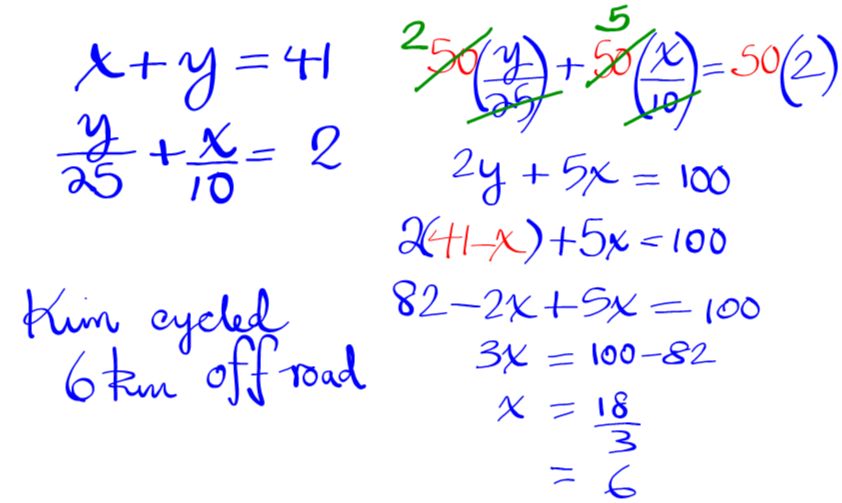 x + y = 41
y/25 + x/10 = 2
Kim cycled
6 km off road
2 50(y/25) + 5 50(x/10) = 50(2)
2y + 5x = 100
2(41-x) + 5x = 100
82 - 2x + 5x = 100
3x = 100 - 82
x = 18/3
= 6